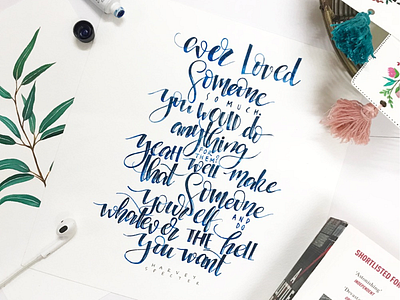 ever Loved
Someone
SO MUCH
you WOULD do
anything
FOR
THEM?
yeah well make
that Someone
yourself AND
DO
whatever THE hell
you want
HARVEY
SPECTER
SHORTLISTED FO
'Astonishing'
INDEPENDENT